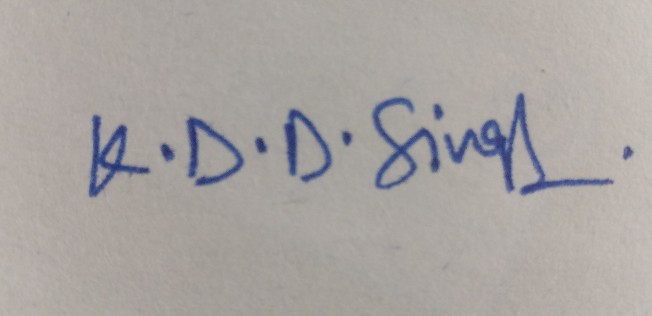 K.D.D. Singh.